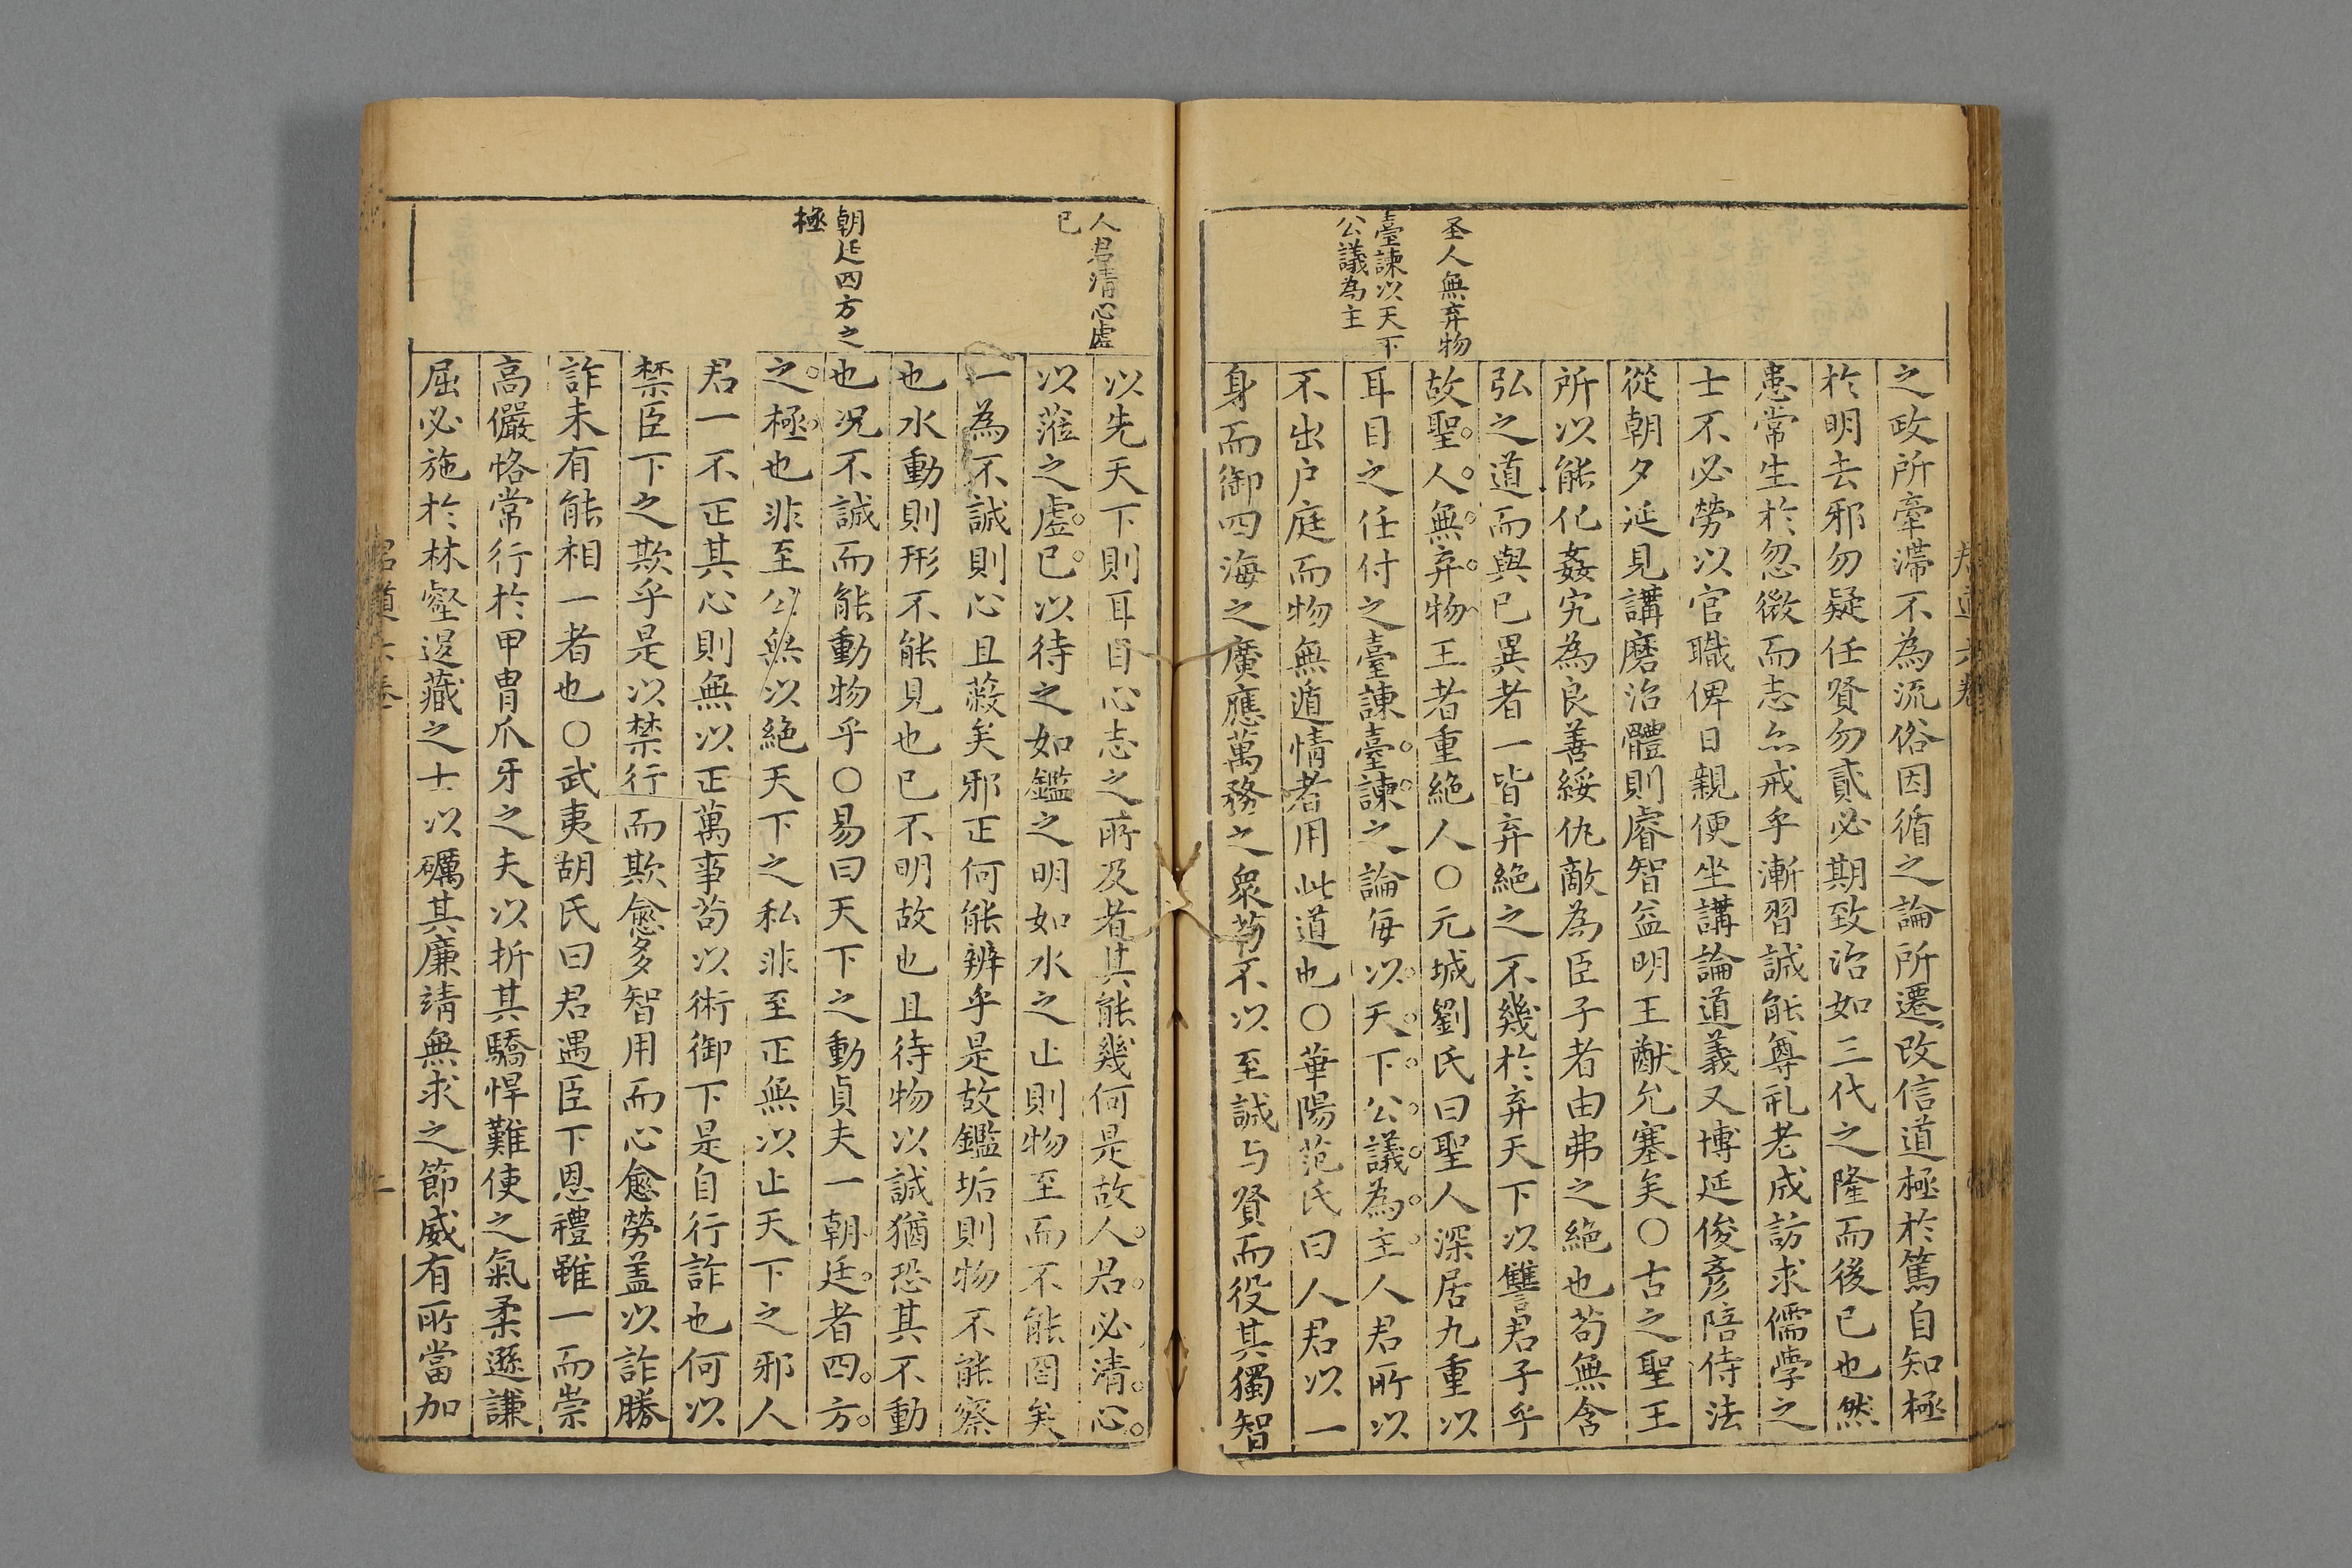 圣人無弃物
臺諫以天下
公議為主
之政所牽滯不為流俗因循之論所遷改信道極於篤自知極
於明去邪勿疑任賢勿貳必期致治如三代之隆而後已也然
患常生於忽微而志亦戒乎漸習誠能尊礼老成訪求儒學之
士不必勞以官職俾日親便坐講論道義又博延俊彥陪侍法
從朝夕延見講磨治體則睿智益明王猷允塞矣○古之聖王
所以能化姦宄為良善綏仇敵為臣子者由弗之絶也苟無含
弘之道而與已異者一皆弃絶之不幾於弃天下以讐君子乎
故聖人無弃物王者重絶人○元城劉氏曰聖人深居九重以
耳目之任付之臺諫臺諫之論每以天下公議為主人君所以
不出户庭而物無遁情者用此道也○華陽范氏曰人君以一
身而御四海之廣應萬務之衆苟不以至誠与賢而役其獨智
人君清心虚
已
朝廷四方之
極
以先天下則耳目心志之所及者其能幾何是故人君必清心
以蒞之虚已以待之如鑑之明如水之止則物至而不能罔矣
一為不誠則心且蔽矣邪正何能辨乎是故鑑垢則物不能察
也水動則形不能見也已不明故也且待物以誠猶恐其不動
也况不誠而能動物乎○易曰天下之動貞夫一朝廷者四方
之極也非至公無以絶天下之私非至正無以止天下之邪人
君一不正其心則無以正萬事苟以術御下是自行詐也何以
禁臣下之欺乎是以禁行而欺愈多智用而心愈勞盖以詐勝
詐未有能相一者也○武夷胡氏曰君遇臣下恩禮雖一而崇
高儼恪常行於甲胄爪牙之夫以折其驕悍難使之氣柔遜謙
屈必施於林壑退藏之士以礪其廉靖無求之節威有所當加
君道六卷